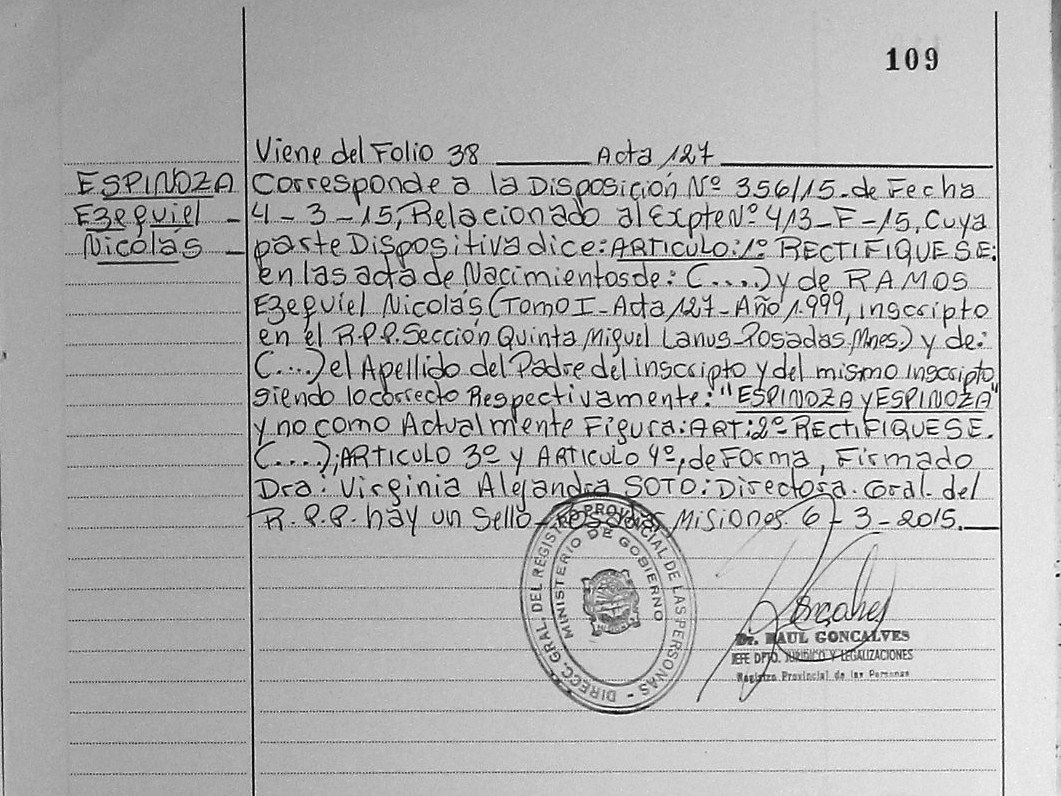 109
Viene del Folio 38 Acta 127
ESPINOZA
Ezequiel -
Nicolás -
Corresponde a la Disposición Nº 356/15. de Fecha
4-3-15, Relacionado al Expte Nº 413-F-15, Cuya
parte Dispositiva dice: ARTICULO: 1º RECTIFIQUESE:
en las acta de Nacimientos de: (....) y de RAMOS
Ezequiel Nicolás (Tomo I - Acta 127 - Año 1.999, inscripto
en el R.P.P. Sección Quinta Miguel Lanus - Posadas. Mnes.) y de:
(....) el Apellido del Padre del inscripto y del mismo inscripto,
siendo lo correcto Respectivamente: "ESPINOZA y ESPINOZA"
y no como Actualmente Figura: ART: 2º RECTIFIQUESE.
(....); ARTICULO 3º y ARTICULO 4º, de Forma, Firmado
Dra: Virginia Alejandra SOTO: Directora. Gral. del
R.P.P. hay un Sello - Posadas, Misiones. 6-3-2015.
DIRECC. GRAL. DEL REGISTRO PROVINCIAL DE LAS PERSONAS -
MINISTERIO DE GOBIERNO
Dr. RAUL GONCALVES
JEFE DPTO. JURIDICO Y LEGALIZACIONES
Registro Provincial de las Personas